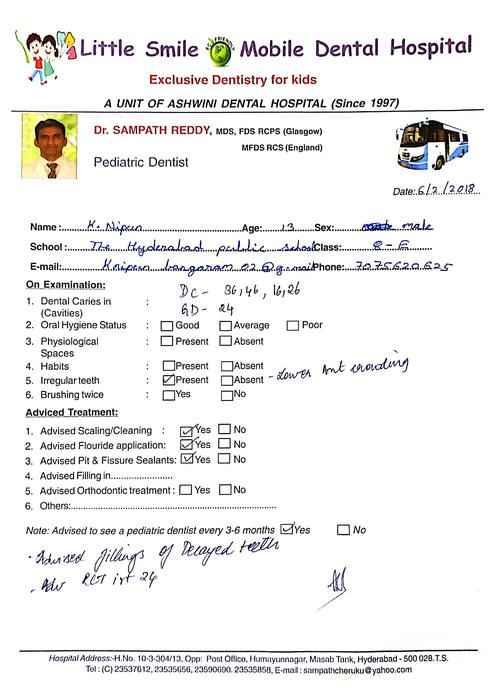 Little Smile Mobile Dental Hospital
ECO FRIENDLY
Exclusive Dentistry for kids
A UNIT OF ASHWINI DENTAL HOSPITAL (Since 1997)
Dr. SAMPATH REDDY, MDS, FDS RCPS (Glasgow)
MFDS RCS (England)
Pediatric Dentist
Date: 6/2/2018
Name: K. Nipun Age: 13 Sex: male
School: The Hyderabad public school Class: 8-E
E-mail: Knipun bangaram 02 @gmail Phone: 7075620625
On Examination:
1. Dental Caries in (Cavities) : DC - 36, 46, 16, 26
GD - 24
2. Oral Hygiene Status : Good Average Poor
3. Physiological Spaces : Present Absent
4. Habits : Present Absent
5. Irregular teeth : Present Absent - Lower Ant crowding
6. Brushing twice : Yes No
Adviced Treatment:
1. Advised Scaling/Cleaning : Yes No
2. Advised Flouride application: Yes No
3. Advised Pit & Fissure Sealants: Yes No
4. Advised Filling in
5. Advised Orthodontic treatment : Yes No
6. Others:
Note: Advised to see a pediatric dentist every 3-6 months Yes No
- Advised fillings of Decayed teeth
- Adv RCT irt 24
Hospital Address:-H.No. 10-3-304/13, Opp: Post Office, Humayunnagar, Masab Tank, Hyderabad - 500 028.T.S.
Tel : (C) 23537612, 23535656, 23590690, 23535858, E-mail : sampathcheruku@yahoo.com